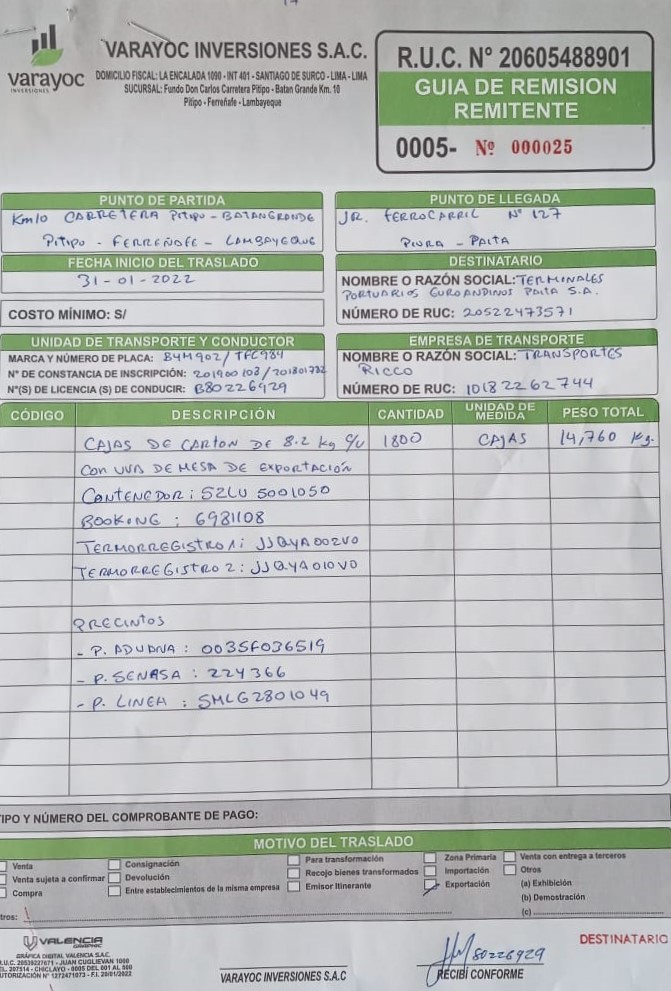 varayoc
INVERSIONES
VARAYOC INVERSIONES S.A.C.
DOMICILIO FISCAL: LA ENCALADA 1090 - INT 401 - SANTIAGO DE SURCO - LIMA - LIMA
SUCURSAL: Fundo Don Carlos Carretera Pitipo - Batan Grande Km. 10
Pitipo - Ferreñafe - Lambayeque
R.U.C. Nº 20605488901
GUIA DE REMISION
REMITENTE
0005- Nº 000025
PUNTO DE PARTIDA
Km10 CARRETERA PITIPO - BATANGRANDE
PITIPO - FERREÑAFE - LAMBAYEQUE
PUNTO DE LLEGADA
JR. FERROCARRIL Nº 127
PIURA - PAITA
FECHA INICIO DEL TRASLADO
31-01-2022
COSTO MÍNIMO: S/
DESTINATARIO
NOMBRE O RAZÓN SOCIAL: TERMINALES
PORTUARIOS EUROANDINOS PAITA S.A.
NÚMERO DE RUC: 20522473571
UNIDAD DE TRANSPORTE Y CONDUCTOR
MARCA Y NÚMERO DE PLACA: B4M902/TFC984
Nº DE CONSTANCIA DE INSCRIPCIÓN: 201900103/201801732
Nº(S) DE LICENCIA (S) DE CONDUCIR: B80226929
EMPRESA DE TRANSPORTE
NOMBRE O RAZÓN SOCIAL: TRANSPORTES
RICCO
NÚMERO DE RUC: 10182262744
CÓDIGO DESCRIPCIÓN CANTIDAD UNIDAD DE MEDIDA PESO TOTAL
CAJAS DE CARTON DE 8.2 kg c/u 1800 CAJAS 14,760 Kg.
CON UVA DE MESA DE EXPORTACIÓN
CONTENEDOR: SZLU 5001050
BOOKING : 6981108
TERMORREGISTRO 1: JJQYA002V0
TERMORREGISTRO 2: JJQYA010V0
PRECINTOS
- P. ADUANA : 0035F036519
- P. SENASA : 224366
- P. LINEA : SMLG2801049
TIPO Y NÚMERO DEL COMPROBANTE DE PAGO:
MOTIVO DEL TRASLADO
Venta Consignación Para transformación Zona Primaria Venta con entrega a terceros
Venta sujeta a confirmar Devolución Recojo bienes transformados Importación Otros
Compra Entre establecimientos de la misma empresa Emisor Itinerante Exportación (a) Exhibición
(b) Demostración
(c)
tros:
VALENCIA
GRÁFICA DIGITAL VALENCIA S.A.C.
R.U.C. 20539227671 - JUAN CUGLIEVAN 1000
EL. 207514 - CHICLAYO - 0005 DEL 001 AL 500
AUTORIZACIÓN Nº 1272471073 - F.I. 20/01/2022
VARAYOC INVERSIONES S.A.C
80226929
RECIBÍ CONFORME
DESTINATARIO